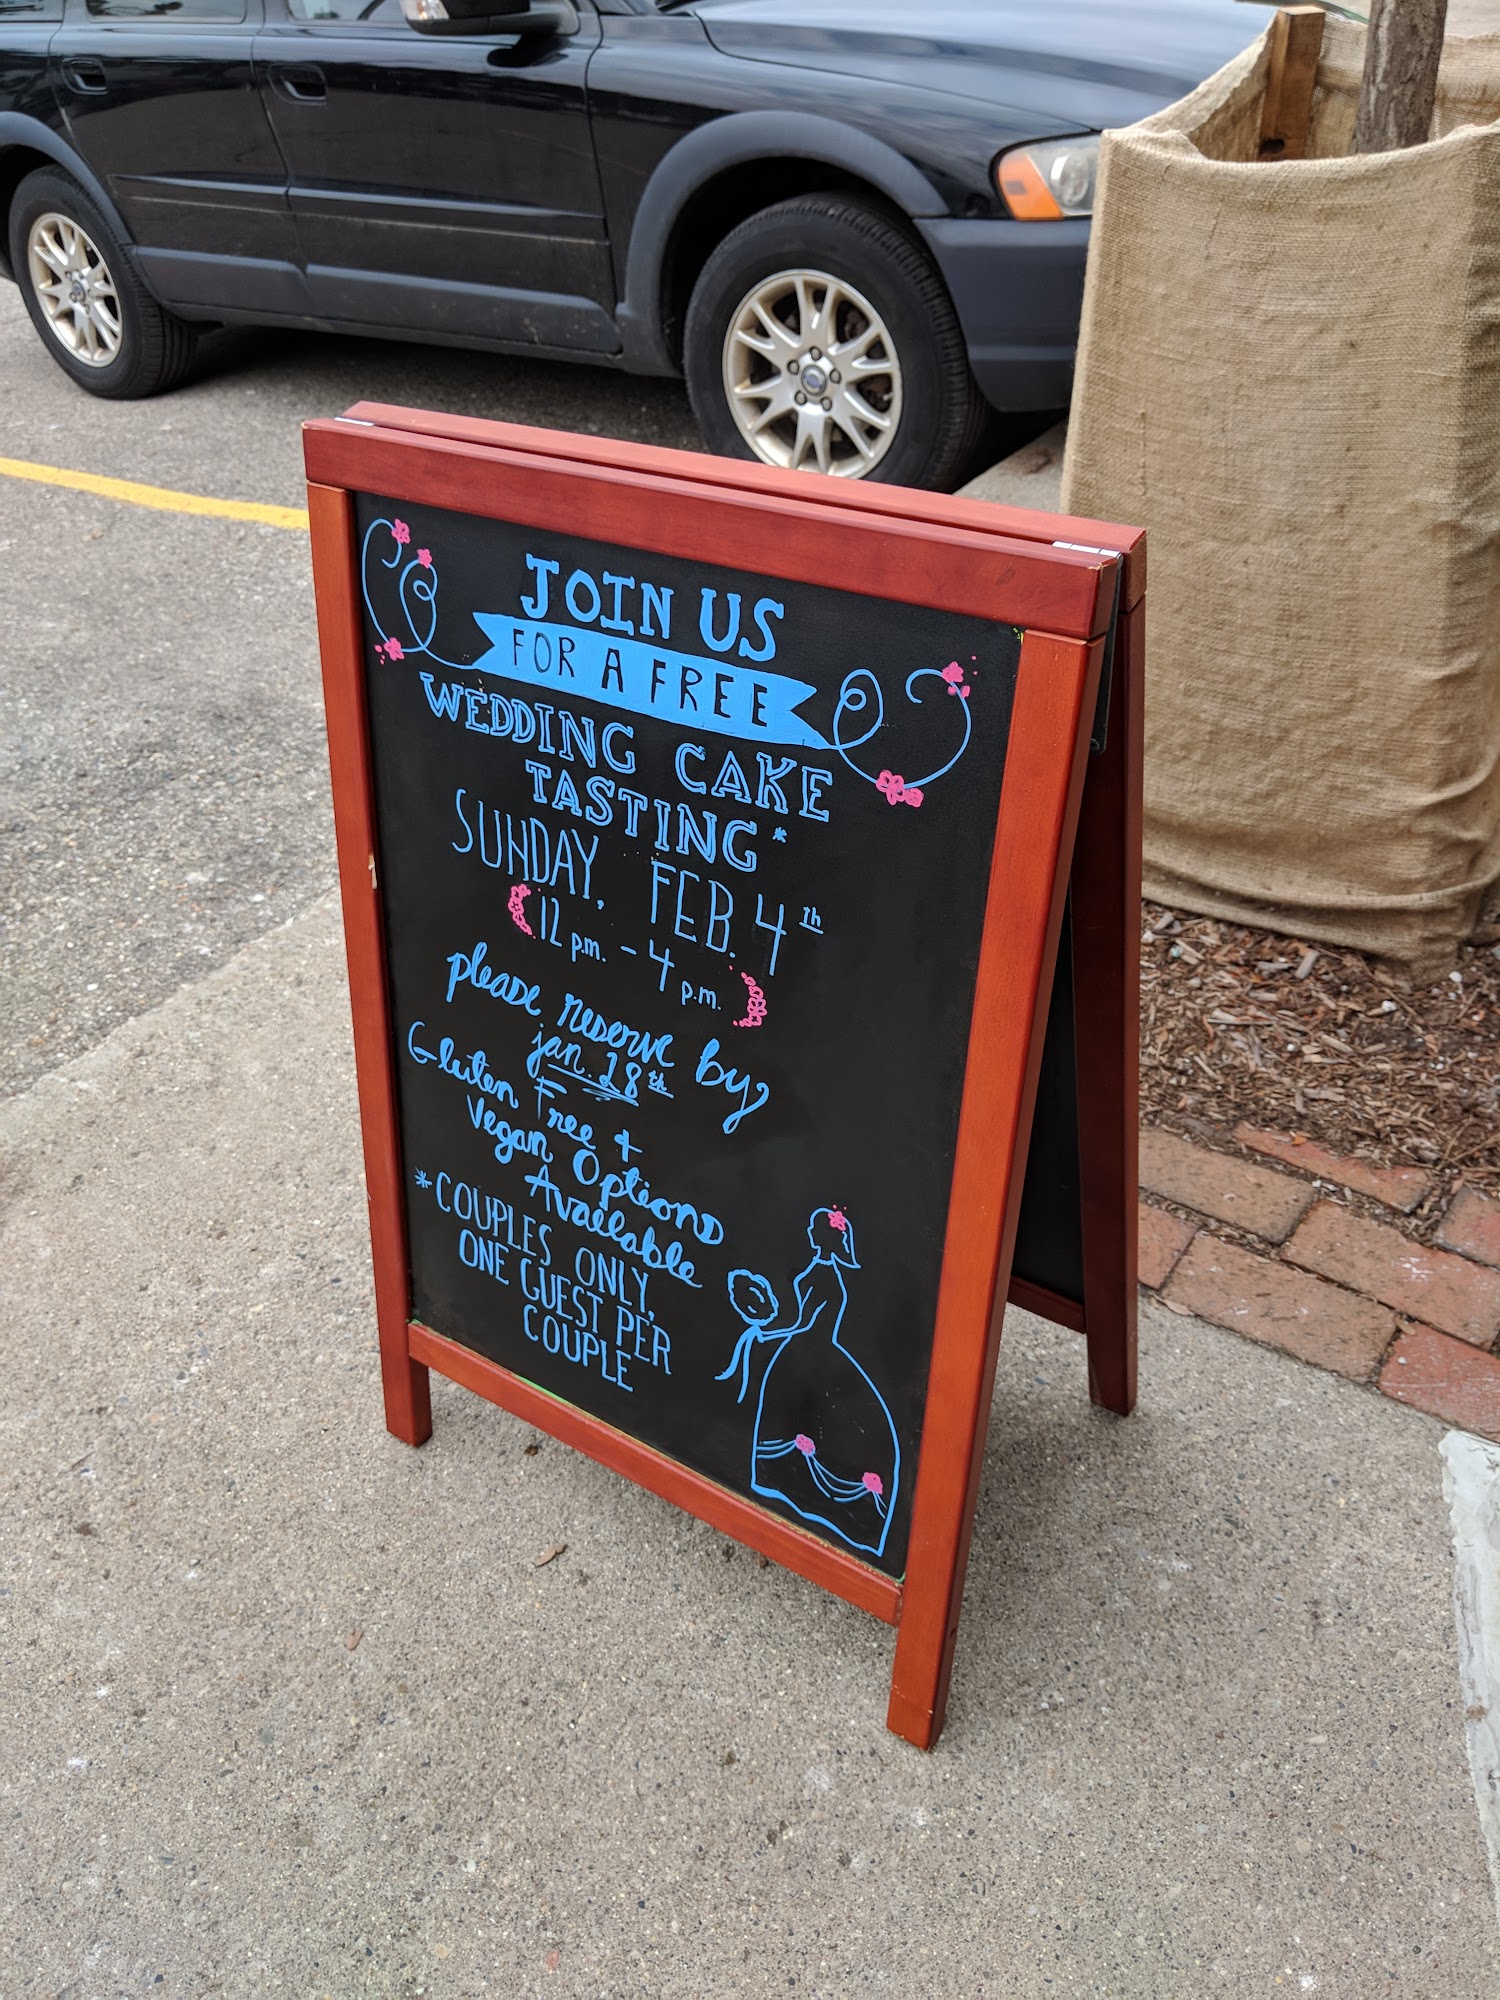 JOIN US
FOR A FREE
WEDDING CAKE
TASTING*
SUNDAY, FEB. 4th
12 p.m. - 4 p.m.
please reserve by
jan. 28th
Gluten Free +
Vegan Options
Available
*COUPLES ONLY,
ONE GUEST PER
COUPLE